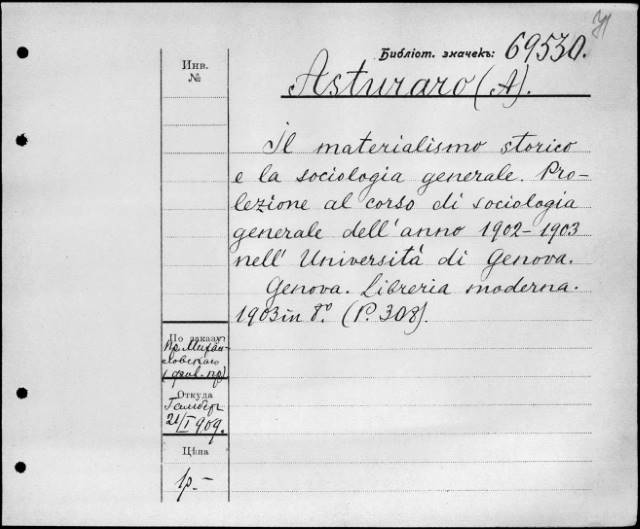 Библіот. значекъ: 69530.
Инв.
№
Asturaro (A).
Il materialismo storico
e la sociologia generale. Pro-
lezione al corso di sociologia
generale dell'anno 1902-1903
nell' Università di Genova.
Genova. Libreria moderna.
1903 in 8.º (P. 308).
По заказу
Пр. Михай-
ловскаго
Откуда
21/I 909.
Цѣна
1р. –